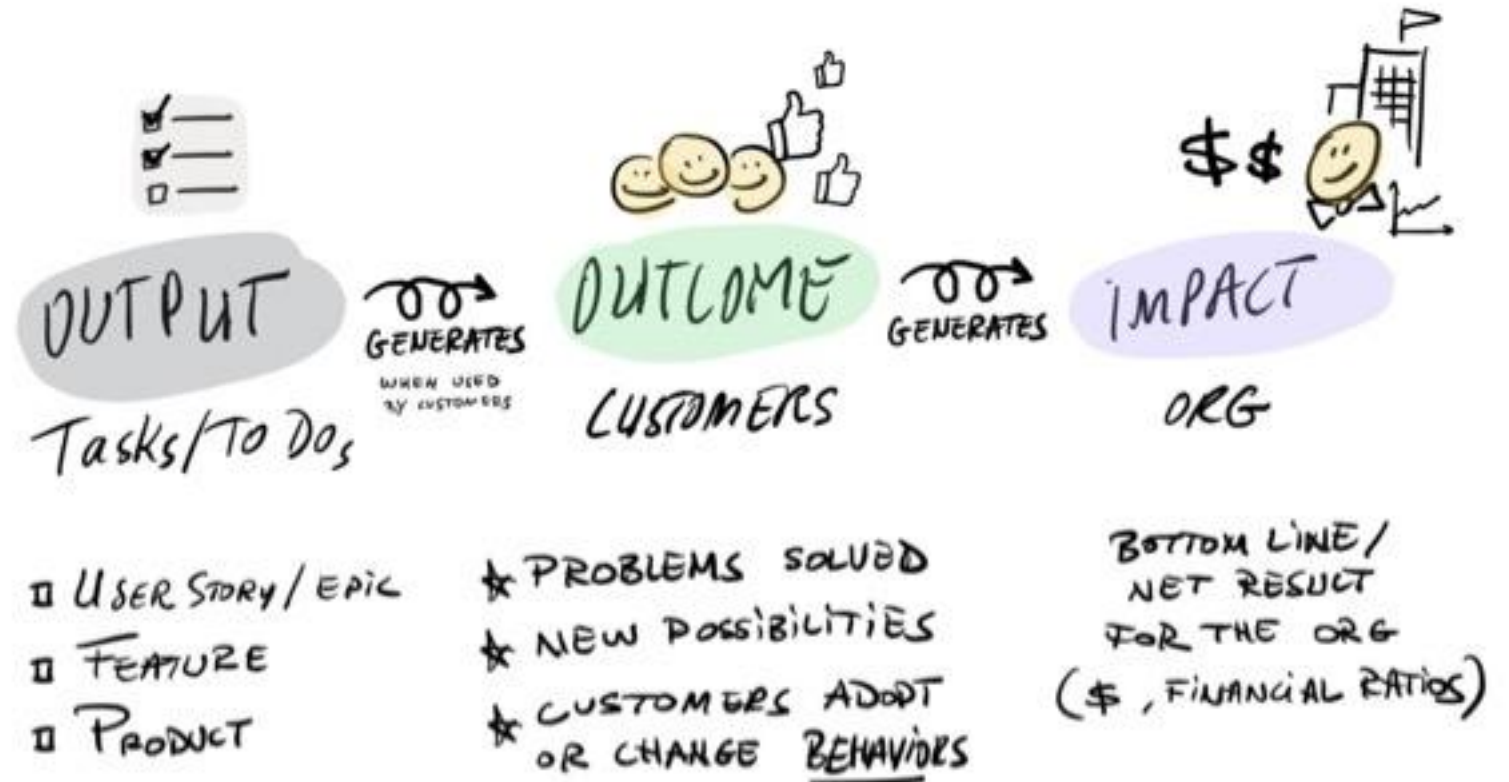 $ $
OUTPUT
GENERATES
WHEN USED
BY CUSTOMERS
OUTCOME
GENERATES
IMPACT
Tasks/To Dos
CUSTOMERS
ORG
USER STORY / EPIC
FEATURE
PRODUCT
PROBLEMS SOLVED
NEW POSSIBILITIES
CUSTOMERS ADOPT
OR CHANGE BEHAVIORS
BOTTOM LINE /
NET RESULT
FOR THE ORG
($, FINANCIAL RATIOS)